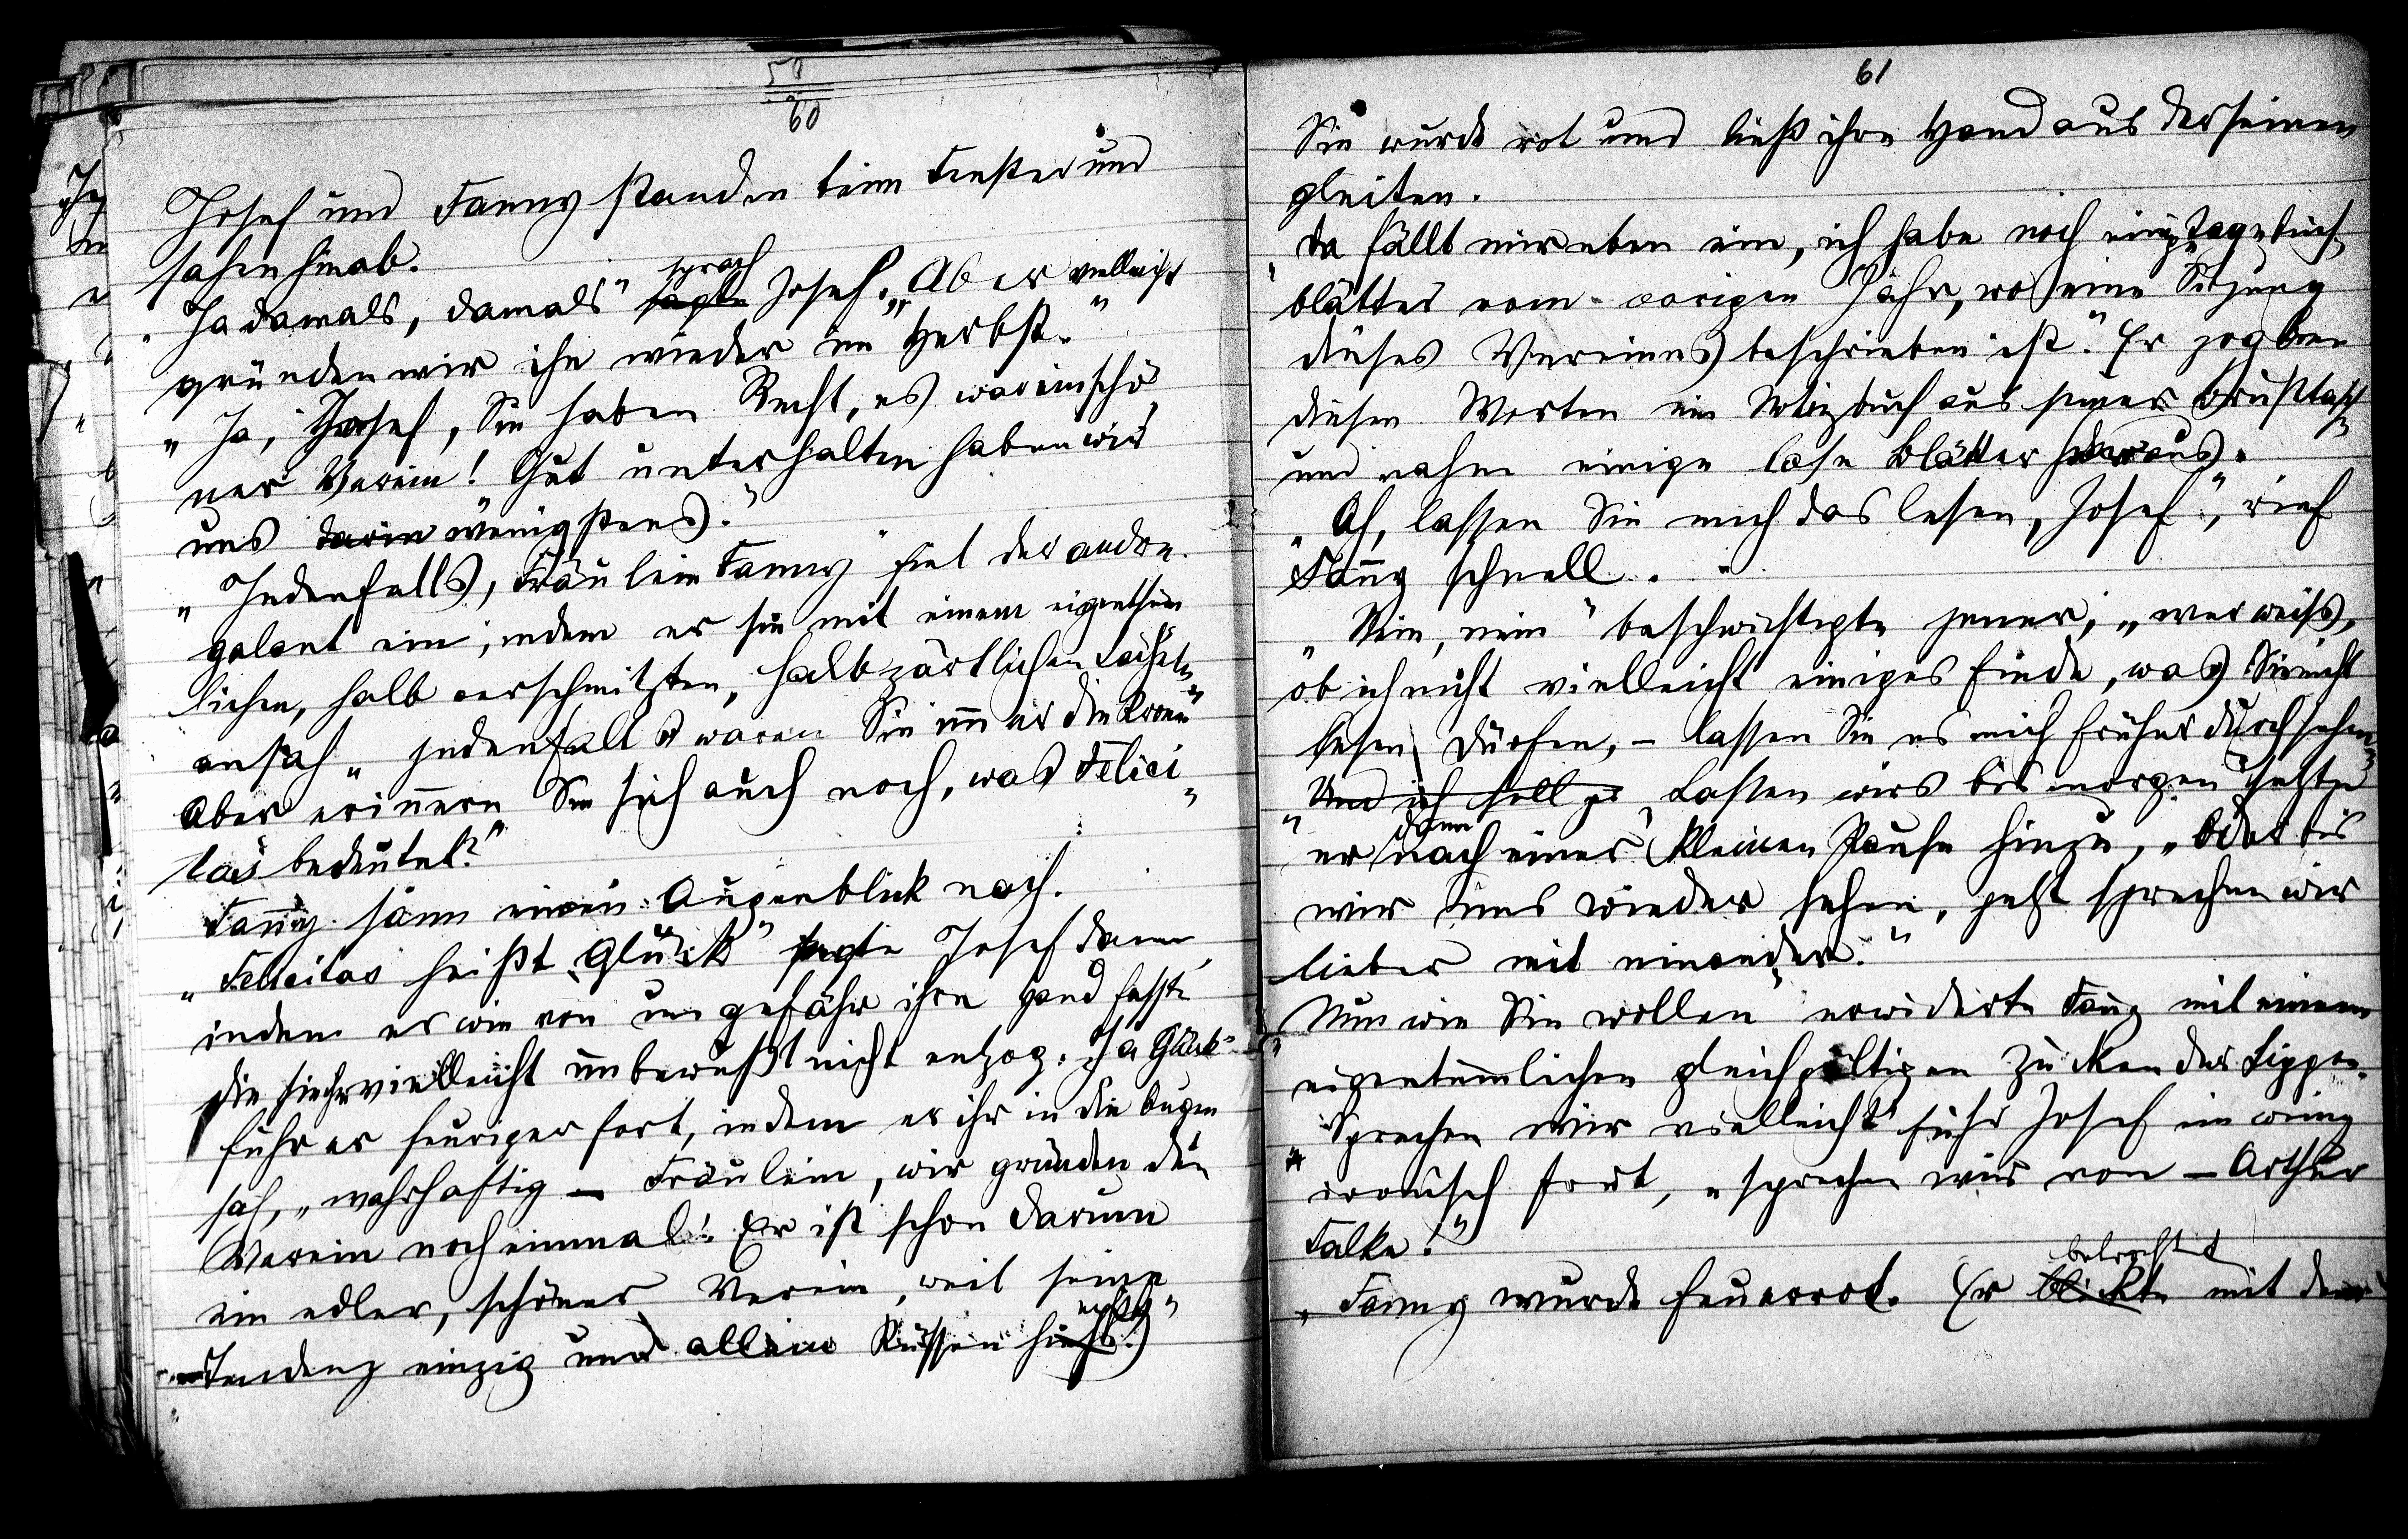 58
60
Josef und Fanny standen beim Fenster und
sahen hinab.
„Ja damals, damals" sagte sprach Josef. „Aber vielleicht
gründen wir ihn wieder im Herbst."
„Ja, Josef, Sie haben Recht, es war ein schö-
ner Verein! Gut unterhalten haben wir
uns darin wenigstens."
„Jedenfalls, Fräulein Fanny" fiel der andre
galant ein, indem er sie mit einem eigenthüm
lichen, halb verschmitzten, halb zärtlichen Lächeln
ansah „jedenfalls waren Sie immer die
Aber erinnern Sie sich auch noch, was Felici-
tas bedeutet?"
Fanny sann einen Augenblick nach.
„Felicitas heißt Glück" sagte Josef dann,
indem er wie von ungefähr ihre Hand fasste
die sie ihm vielleicht unbewußt nicht entzog. „Ja Glück"
fuhr er feuriger fort, indem er ihr in die Augen
sah, „wahrhaftig – Fräulein, wir gründen den
Verein noch einmal! Er ist schon darum
ein edler, schöner Verein, weil seine
Tendenz einzig und allein Küssen hieß."
61
Sie wurde rot und ließ ihre Hand aus der seinen
gleiten.
„Da fällt mir eben ein, ich habe noch einige Tagebuch-
blätter vom vorigen Jahr, wo eine Sitzung
dieses Vereines beschrieben ist." Er zog bei
diesen Worten ein Notizbuch aus seiner Brusttasche
und nahm einige lose Blätter heraus.
„Ah, lassen Sie mich das lesen, Josef", rief
Fanny schnell.
„Nein, nein" beschwichtigte jener, „wer weiß,
ob ich nicht vielleicht einiges finde, was Sie nicht
lesen dürfen, – lassen Sie es mich früher durchsehen"
„Und ich soll „Lassen wirs bis morgen" setzte
er dann nach einer kleinen Pause hinzu, „oder bis
wir uns wieder sehen, jetzt sprechen wir
lieber mit einander."
„Nun wie Sie wollen" erwiderte Fanny mit einem
eigentümlichen gleichgültigen Zucken der Lippen.
„Sprechen wir vielleicht" fuhr Josef ein wenig
ironisch fort, „sprechen wir von – Arthur
Falke!"
Fanny wurde feuerrot. Er blickte betrachtet mit dem